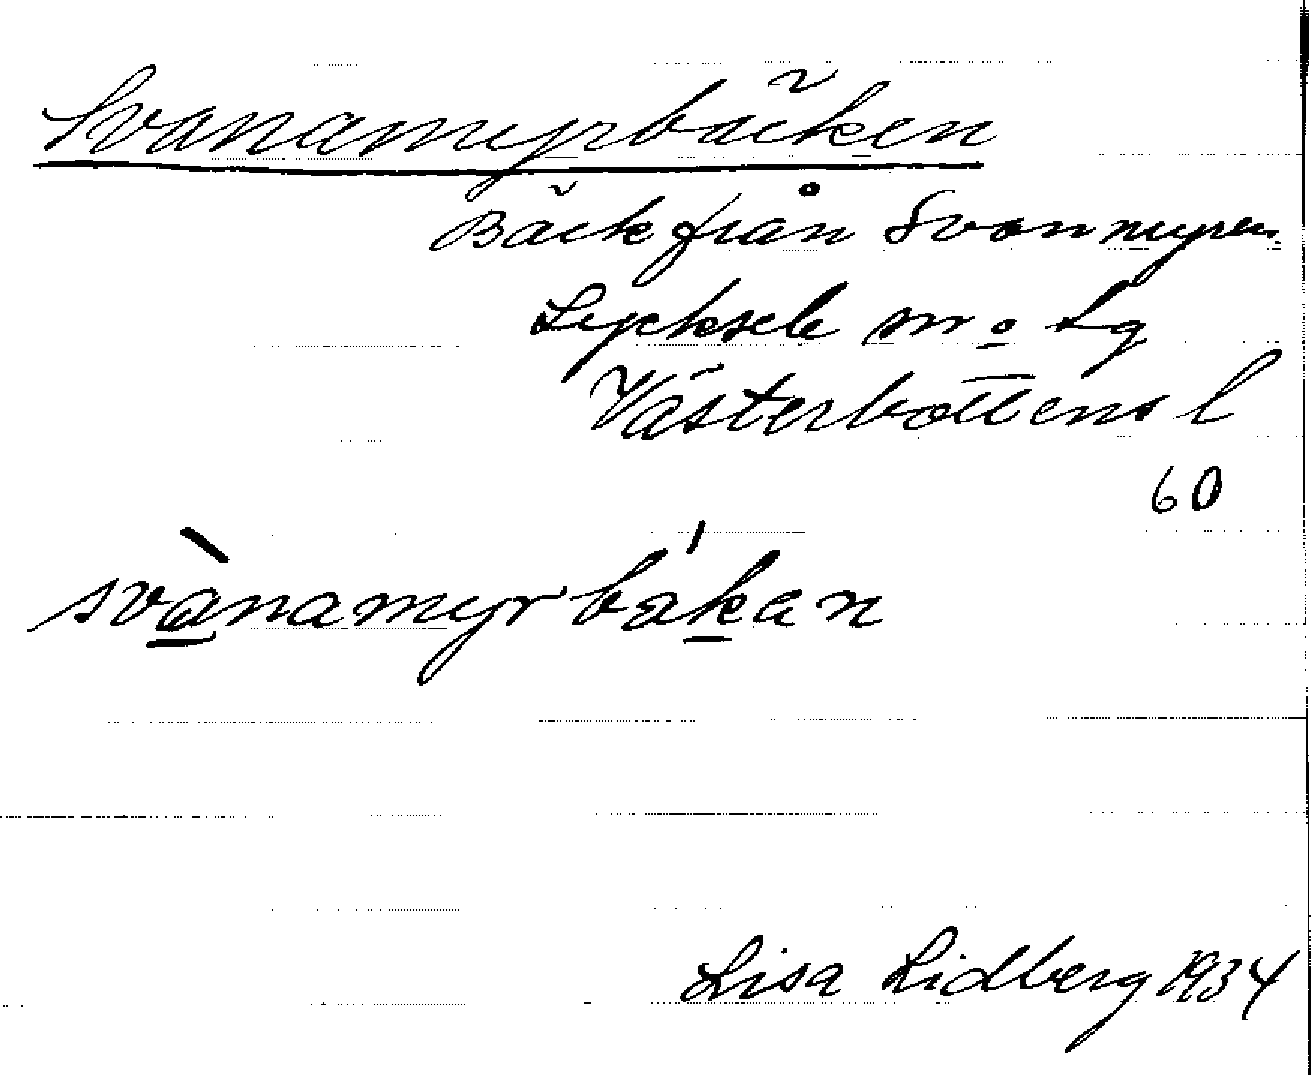 Svanamyrbäcken
Bäck från Svanmyren
Lycksele sn o. Lg
Västerbottens l
60
svànamyrbákan
Lisa Lidberg 1934